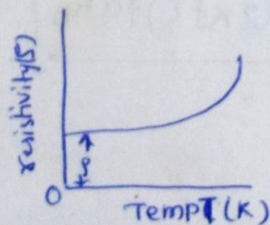 resistivity(S)
0
TempT(K)